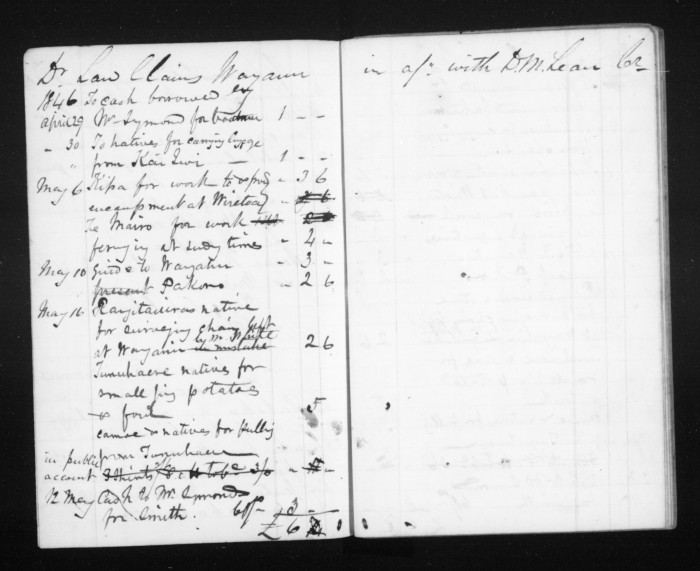 Dr Law Claims Wayann
1846 To cash borrowed by
April 29 Mr Symond for 1 - -
" 30 To natives for carrying luggage
" from Kai Iwi — 1 - -
May 6 Kipa for work to & from - 3 6
encampment at -
Te Mairo for work
ferrying at sundry times - 4 -
May 10 Guide to Wayann - 3 -
present Pakoro - 2 6
May 16 Rangitauira a native
for surveying chain left
at Wayann by Mr in mistake 2 6
Tunuhaere natives for
small pig potatoes
& fowl 5
canoe & natives for pulling
from Tunuhaere
in public
account I think to be 3/0 -
12 May Cash to Mr Symond
for Smith. 3 -
£ 6
in a/c with D. McLean Cr